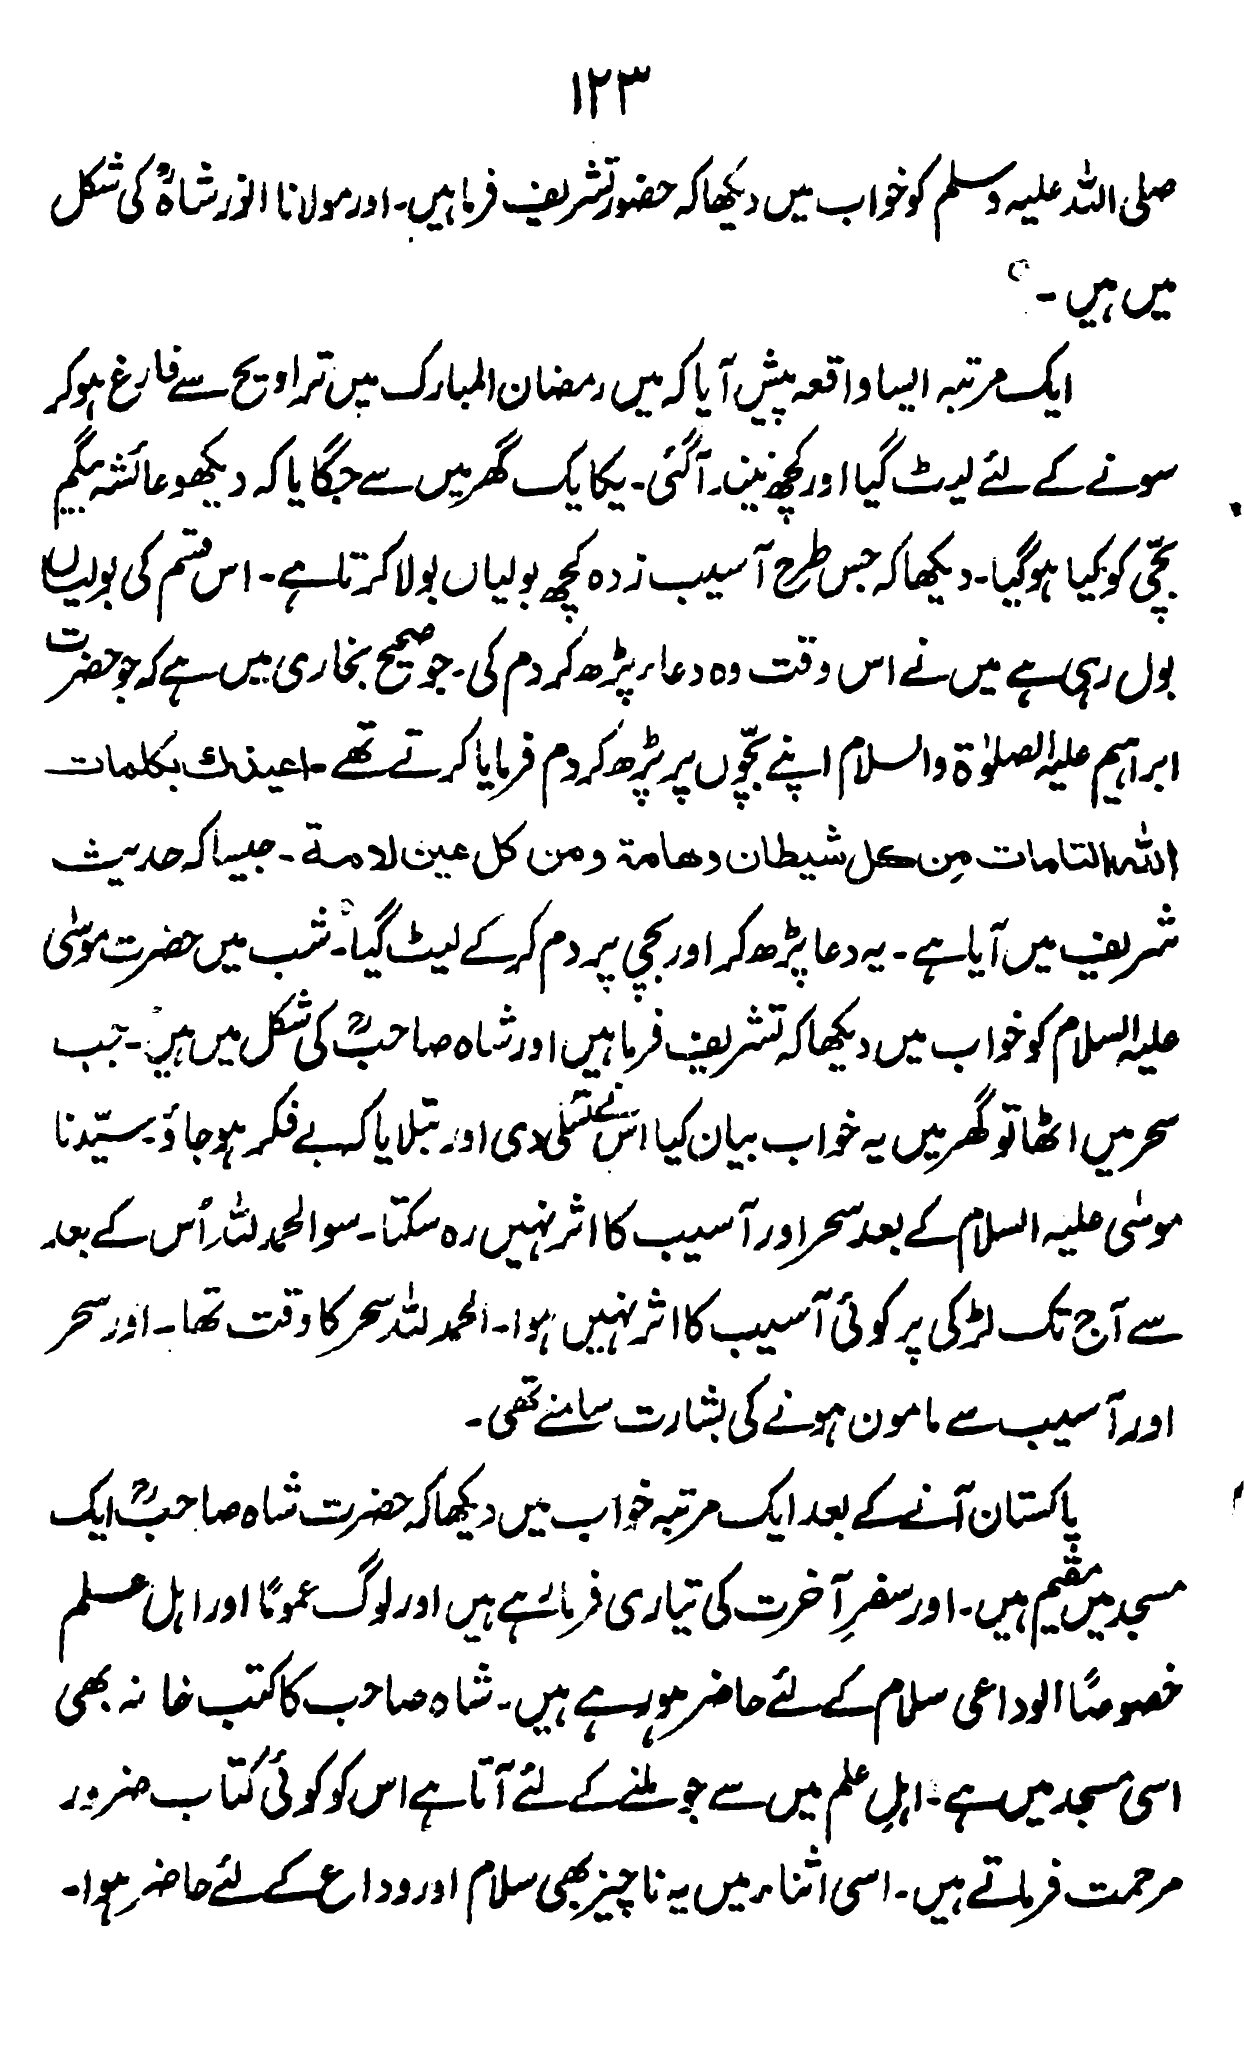 ۱۲۳
صلی اللہ علیہ وسلم کو خواب میں دیکھا کہ حضور تشریف فرما ہیں۔ اور مولانا انور شاہؒ کی شکل
میں ہیں ۔
ایک مرتبہ ایسا واقعہ پیش آیا کہ میں رمضان المبارک میں تراویح سے فارغ ہو کر
سونے کے لئے لیٹ گیا اور کچھ نیند آگئی۔ یکایک گھر میں سے جگایا کہ دیکھو عائشہ بیگم
بچّی کو کیا ہو گیا۔ دیکھا کہ جس طرح آسیب زدہ کچھ بولیاں بولا کرتا ہے۔ اس قسم کی بولیاں
بول رہی ہے میں نے اس وقت وہ دعاء پڑھ کر دم کی۔ جو صحیح بخاری میں ہے کہ جو حضرت
ابراہیم علیہ الصلوٰۃ والسلام اپنے بچّوں پر پڑھ کر دم فرمایا کرتے تھے ۔ اعیذک بکلمات
اللہ التامات مِن کل شیطان وھامۃ ومن کل عین لامۃ ۔ جیسا کہ حدیث
شریف میں آیا ہے ۔ یہ دعا پڑھ کر اور بچی پر دم کر کے لیٹ گیا۔ شب میں حضرت موسٰی
علیہ السلام کو خواب میں دیکھا کہ تشریف فرما ہیں اور شاہ صاحبؒ کی شکل میں ہیں۔ جب
سحر میں اٹھا تو گھر میں یہ خواب بیان کیا اس نے تسلّی دی اور بتلایا کہ بے فکر ہو جاؤ۔ سیّدنا
موسٰی علیہ السلام کے بعد سحر اور آسیب کا اثر نہیں رہ سکتا۔ سو الحمد للہ اُس کے بعد
سے آج تک لڑکی پر کوئی آسیب کا اثر نہیں ہوا۔ الحمد للہ سحر کا وقت تھا۔ اور سحر
اور آسیب سے مامون ہونے کی بشارت سامنے تھی ۔
پاکستان آنے کے بعد ایک مرتبہ خواب میں دیکھا کہ حضرت شاہ صاحبؒ ایک
مسجد میں مقیم ہیں۔ اور سفرِ آخرت کی تیاری فرما رہے ہیں اور لوگ عموماً اور اہل علم
خصوصاً الوداعی سلام کے لئے حاضر ہو رہے ہیں۔ شاہ صاحب کا کتب خانہ بھی
اسی مسجد میں ہے۔ اہلِ علم میں سے جو ملنے کے لئے آتا ہے اس کو کوئی کتاب ضرور
مرحمت فرماتے ہیں۔ اسی اثناء میں یہ ناچیز بھی سلام اور وداع کے لئے حاضر ہوا۔